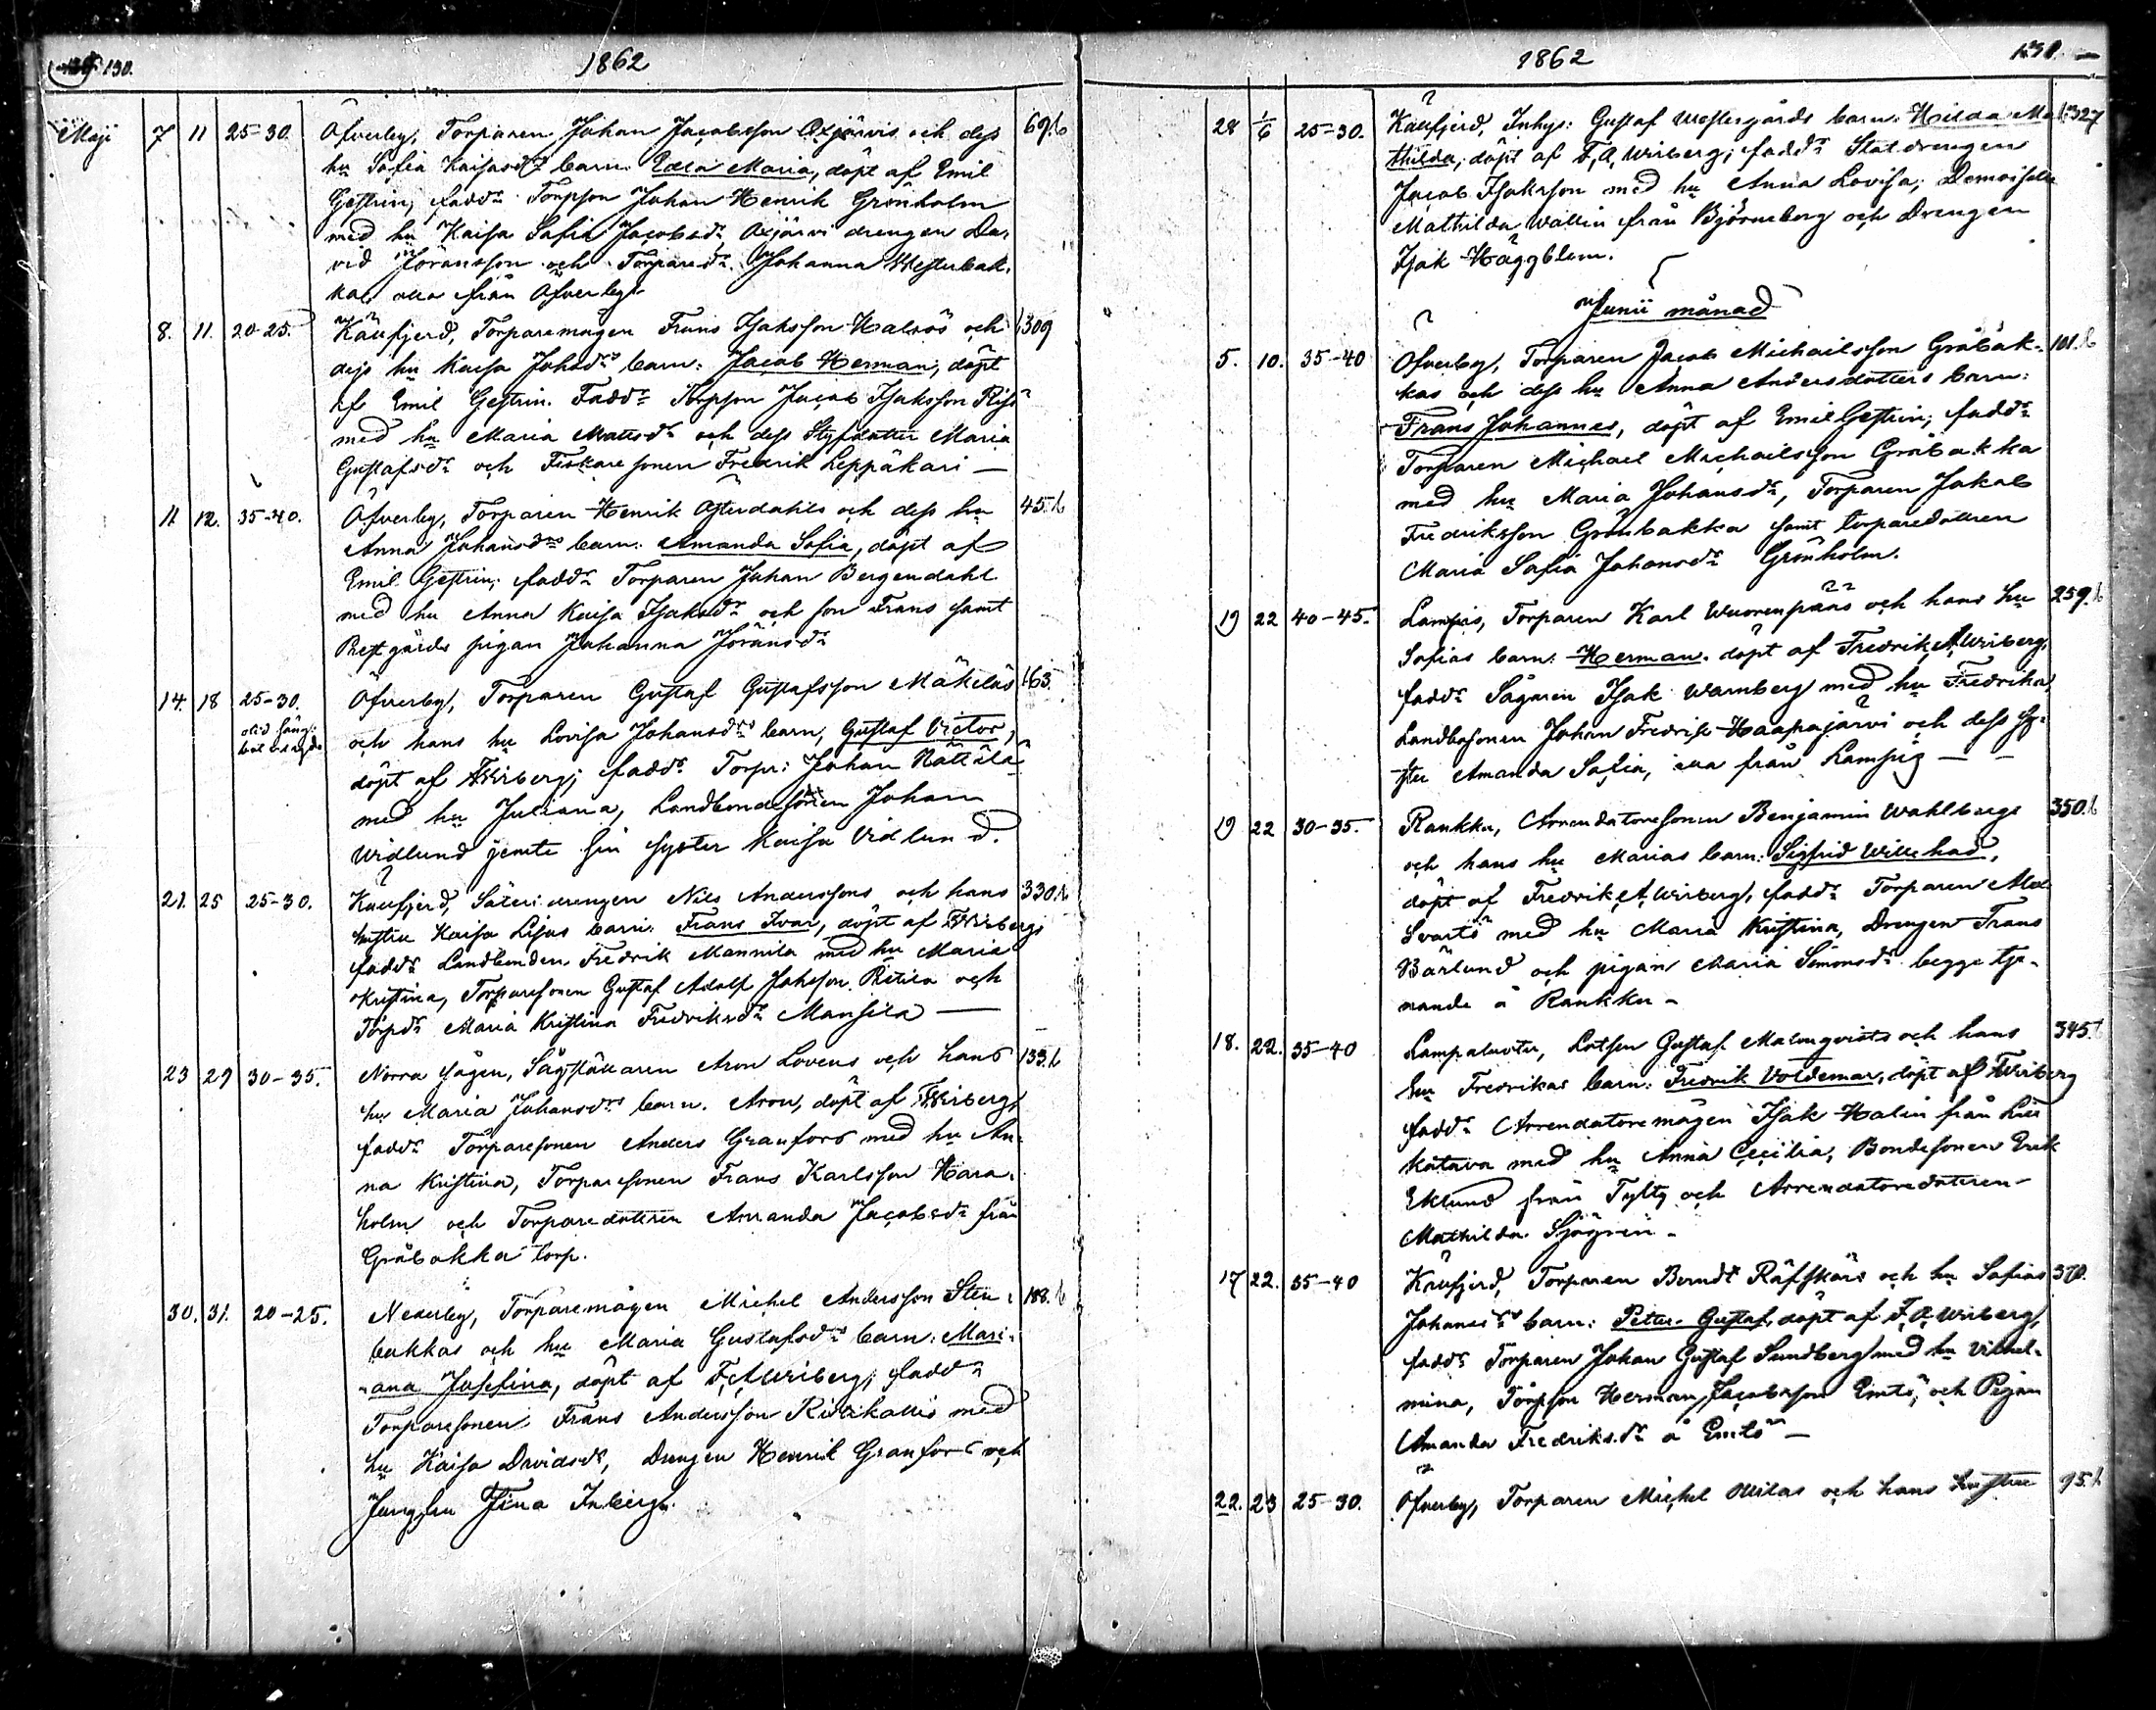 130. 1862
Maji 7 11 25-30. Öfverby, Torparen Johan Jacobsson Axjärvis och dess 69.b
hu Sofia Kaisasdr barn: Edla Maria, döpt af Emil
Gestrin; faddr Torpson Johan Henrik Grönholm
med hu Kaisa Sofia Jacobsdr, Axjärvi drengen Da-
vid Jöransson och Torparedr Johanna Westerbak-
ka, alla från Öfverby.
8. 11. 20-25. Käufjerd, Torparemågen Frans Isaksson Halsös och 309
dess hu Kaisa Johsdrs barn: Jacob Herman, döpt
af Emil Gestrin. Faddr Torpson Jacob Isaksson
med hu Maria Mattsdr och dess Styfdotter Maria
Gustafsdr och Fiskaresonen Fredrik Leppäkari —
11 12. 35-40. Öfverby, Torparen Henrik Österdahls och dess hu 45.b
Anna Johansdrs barn: Amanda Sofia, döpt af
Emil Gestrin; faddr Torparen Johan Bergendahl
med hu Anna Kaisa Isaksdr och son Frans samt
Prestgårds pigan Johanna Jöransdr
14. 18 25-30. Öfverby, Torparen Gustaf Gustafsson Mäkeläs 63.
och hans hu Lovisa Johansdrs barn, Gustaf Victor,
döpt af FAWiberg; faddr Torpr: Johan Nättälä
med hu Juliana, Landbondesonen Johan
Widlund jemte sin syster Kaisa Vidlund.
21. 25 25-30. Käufjerd, Säteri drengen Nils Anderssons och hans 330.b
hustru Kaisa Lisas barn: Frans Ivar, döpt af FAWiberg;
faddr Landbonden Fredrik Mannila med hu Maria
Kristina, Torparesonen Gustaf Adolf Johsson och
Torpdr Maria Kristina Fredriksdr Mansila —
23 29 30-35. Norra sågen, Sågställaren Aron Lovens och hans 133.b
hu Maria Johansdrs barn. Aron, döpt af FAWiberg,
faddr Torparesonen Anders Granfors med hu An-
na Kristina, Torparesonen Frans Karlsson Hara-
holm och Torparedotteren Amanda Jacobsdr från
Gråbakka torp.
30. 31. 20-25. Nederby, Torparemågen Michel Andersson Sten- 188.b
bakkas och hu Maria Gustafsdrs barn: Mari-
ana Josefina, döpt af F.A.Wiberg; faddr
Torparesonen Frans Andersson Kivikallio med
hu Kaisa Davidsdr, Drengen Henrik Granfors och
Jungfru Fina Inberg.
1862
28 1/6 25-30. Käufjerd, Inhys: Gustaf Westergårds barn: Hilda Ma- 327
thilda; döpt af F.A. Wiberg; faddr Statdrengen
Jacob Isaksson med hu Anna Lovisa; Demoiselle
Mathilda Wallin från Björneborg och Drengen
Isak Häggblom.
Junii månad
5. 10. 35-40 Öfverby, Torparen Jacob Michailsson Gråbak- 101.b
kas och dess hu Anna Andersdotters barn:
Frans Johannes, döpt af Emil Gestrin; faddr
Torparen Michael Michailsson Gråbakka
med hu Maria Johansdr, Torparen Jakob
Fredriksson Grönbakka samt torparedotteren
Maria Sofia Johansdr Grönholm.
19 22 40-45. Lampis, Torparen Karl Wuorenpääs och hans hu 259.b
Sofias barn: Herman. döpt af Fredrik A. Wiberg,
faddr Sågaren Isak Warnberg med hu Fredrika,
Landbosonen Johan Fredrik Haapajärvi och dess sy-
ster Amanda Sofia, alla från Lampis — —
19 22 30-35. Rankku, Arrendatoresonen Benjamin Wahlbergs 350.b
och hans hu Marias barn: Sigfrid Willehad,
döpt af Fredrik A. Wiberg, faddr Torparen
Svartö med hu Maria Kristina, Drengen Frans
Bärlund och pigan Maria Simonsdr begge tje-
nande å Rankku —
18. 22. 35-40 Lampaluoto, Lotsen Gustaf Malmqvists och hans 345.b
hu Fredrikas barn: Fredrik Voldemar, döpt af FAWiberg
faddr Arrendatoremågen Isak Halin från
katava med hu Anna Cecilia, Bondesonen Erik
Eklund från Tylty och Arrendatoredotteren
Mathilda Sjögren —
17 22. 35-40 Käufjerd, Torparen Berndt Räfskärs och hu Sofias 370.
Johansdrs barn: Petter Gustaf, döpt af F.A. Wiberg,
faddr Torparen Johan Gustaf Sundberg med hu Vilhel-
mina, Torpson Herman Jacobsson Emtö, och Pigan
Amanda Fredriksdr å Emtö —
22. 23 25-30. Öfverby, Torparen Michel Ollilas och hans hustru 95.b